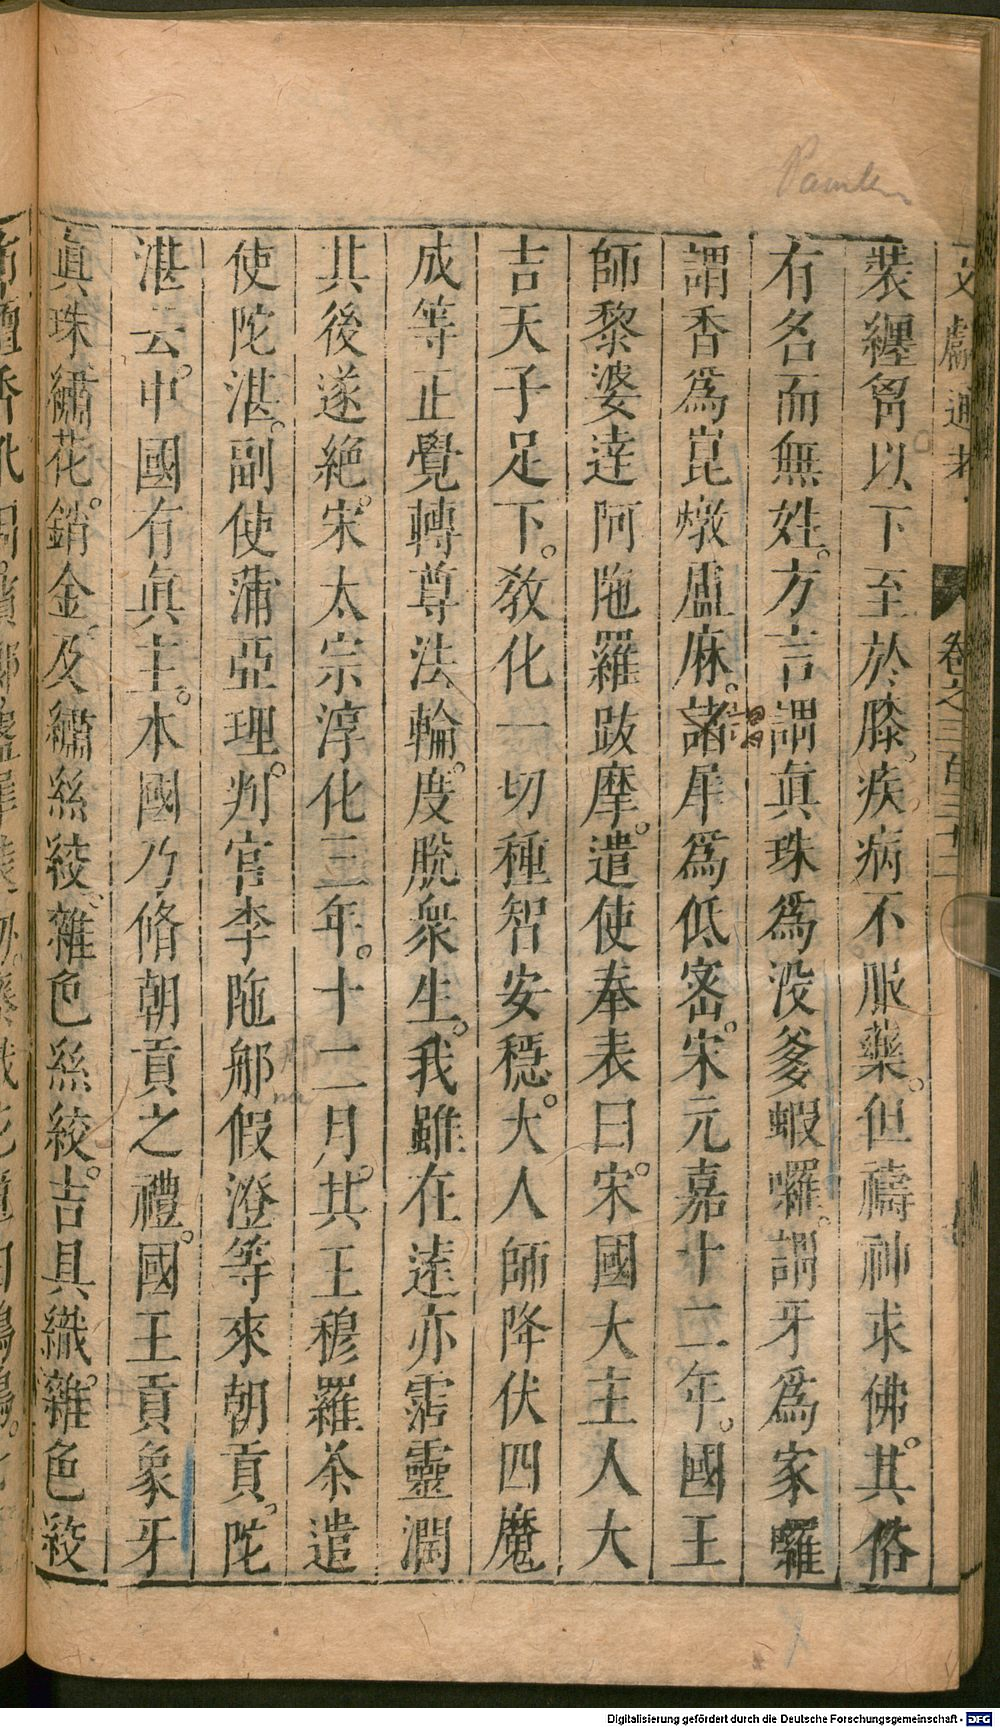 文獻通考 卷之三百三十二
裝纏胷以下至於膝疾病不服藥但禱神求佛其俗
有名而無姓方言謂眞珠爲没爹蝦囉謂牙爲家囉
謂香爲崑燉盧麻謂犀爲低密宋元嘉十二年國王
師黎婆達阿陁羅跋摩遣使奉表曰宋國大主人大
吉天子足下教化一切種智安穩大人師降伏四魔
成等正覺轉尊法輪度脫衆生我雖在遠亦霑靈潤
其後遂絶宋太宗淳化三年十二月其王穆羅茶遣
使陀湛副使蒲亞理判官李陁𨚗假澄等來朝貢陀
湛云中國有眞主本國乃脩朝貢之禮國王貢象牙
眞珠繡花銷金及繡絲絞雜色絲絞吉貝織雜色絞
Digitalisierung gefördert durch die Deutsche Forschungsgemeinschaft - DFG